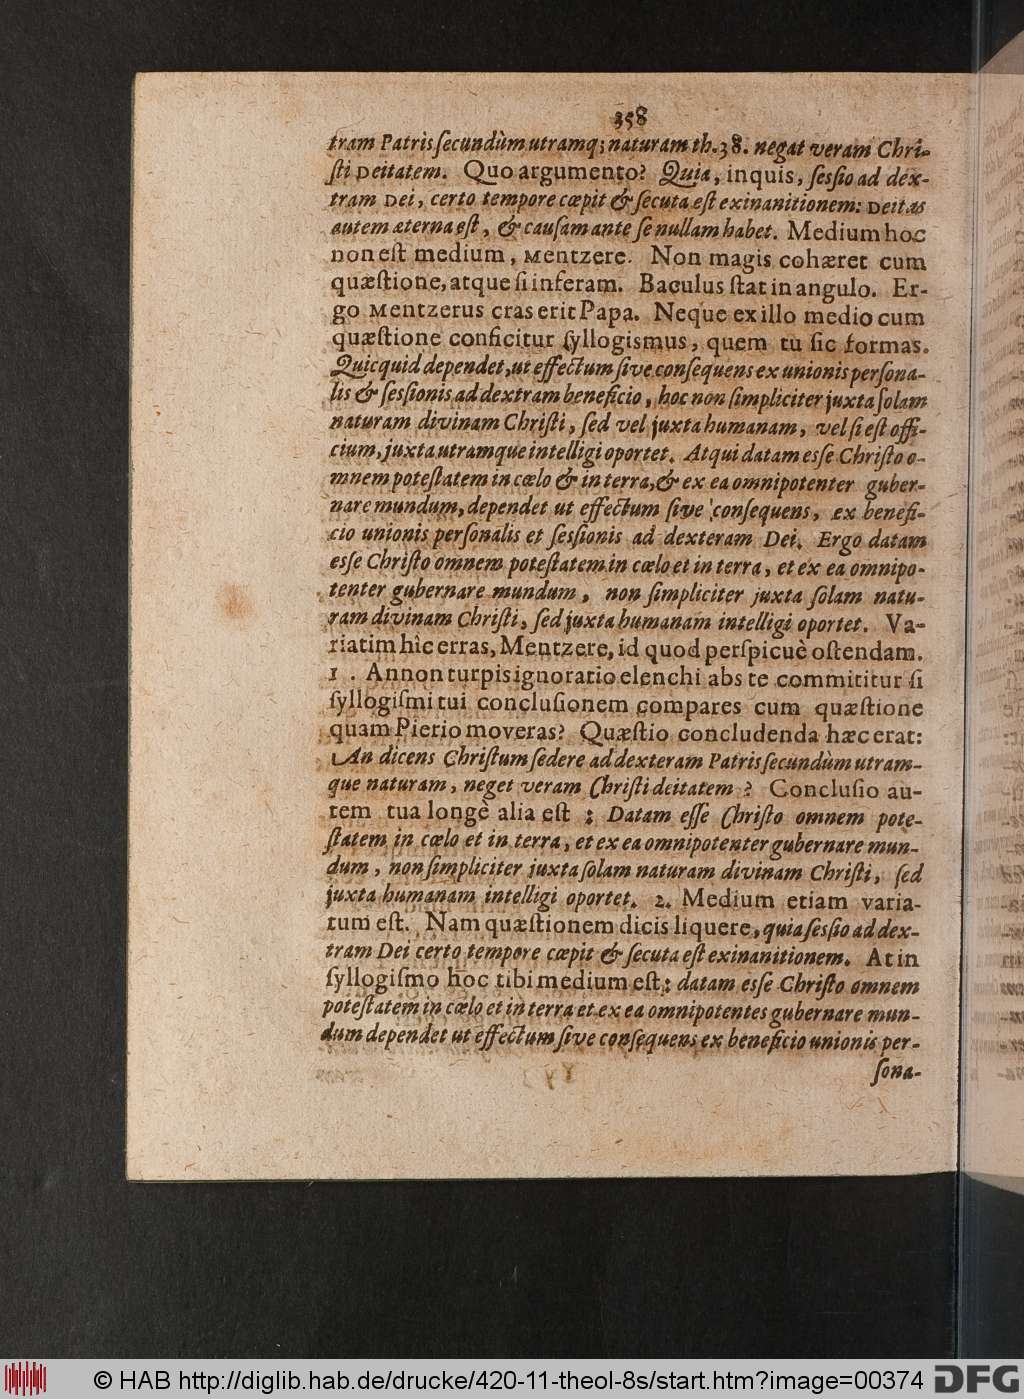 358
tram Patris ſecundùm utramq; naturam th. 38. negat veram Chri-
ſti Deitatem. Quo argumento? Quia, inquis, ſeſsio ad dex-
tram Dei, certo tempore cœpit & ſecuta eſt exinanitionem: Deitas
autem æterna eſt, & cauſam ante ſe nullam habet. Medium hoc
non eſt medium, Mentzere. Non magis cohæret cum
quæſtione, atque ſi inferam. Baculus ſtat in angulo. Er-
go Mentzerus cras erit Papa. Neque ex illo medio cum
quæſtione conficitur ſyllogismus, quem tu ſic formas.
Quicquid dependet, ut effectum ſive conſequens ex unionis perſona-
lis & ſeſsionis ad dextram beneficio, hoc non ſimpliciter juxta ſolam
naturam divinam Chriſti, ſed vel juxta humanam, vel ſi eſt offi-
cium, juxta utramque intelligi oportet. Atqui datam esſe Chriſto o-
mnem poteſtatem in cœlo & in terra, & ex ea omnipotenter guber-
nare mundum, dependet ut effectum ſive conſequens, ex benefi-
cio unionis perſonalis et ſesſionis ad dexteram Dei. Ergo datam
esſe Chriſto omnem poteſtatem in cœlo et in terra, et ex ea omnipo-
tenter gubernare mundum, non ſimpliciter juxta ſolam natu-
ram divinam Chriſti, ſed juxta humanam intelligi oportet. Va-
riatim hîc erras, Mentzere, id quod perſpicuè oſtendam.
1. Annon turpis ignoratio elenchi abs te committitur ſi
ſyllogiſmi tui concluſionem compares cum quæſtione
quam Pierio moveras? Quæſtio concludenda hæc erat:
An dicens Chriſtum ſedere ad dexteram Patris ſecundùm utram-
que naturam, neget veram Chriſti deitatem? Concluſio au-
tem tua longè alia eſt: Datam eſſe Chriſto omnem pote-
ſtatem in cœlo et in terra, et ex ea omnipotenter gubernare mun-
dum, non ſimpliciter juxta ſolam naturam divinam Chriſti, ſed
juxta humanam intelligi oportet. 2. Medium etiam varia-
tum eſt. Nam quæſtionem dicis liquere, quia ſesſio ad dex-
tram Dei certo tempore cœpit & ſecuta eſt exinanitionem. At in
ſyllogiſmo hoc tibi medium eſt: datam esſe Chriſto omnem
poteſtatem in cœlo et in terra et ex ea omnipotentes gubernare mun-
dum dependet ut effectum ſive conſequens ex beneficio unionis per-
ſona-
© HAB http://diglib.hab.de/drucke/420-11-theol-8s/start.htm?image=00374
DFG